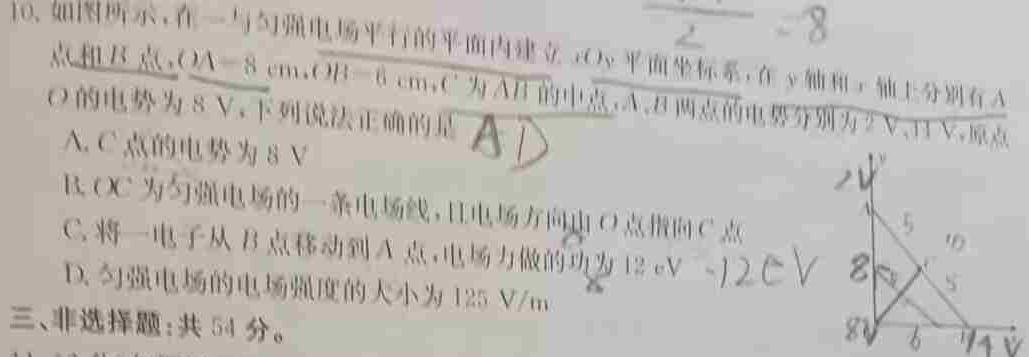 2 = 8
10. 如图所示,在一与匀强电场平行的平面内建立 xOy 平面坐标系,在 y 轴和 x 轴上分别有 A
点和 B 点,OA=8 cm,OB=6 cm,C 为 AB 的中点,A、B 两点的电势分别为 2 V、14 V,原点
O 的电势为 8 V,下列说法正确的是 AD
A. C 点的电势为 8 V
B. OC 为匀强电场的一条电场线,且电场方向由 O 点指向 C 点
C. 将一电子从 B 点移动到 A 点,电场力做的功为 12 eV -12eV
D. 匀强电场的电场强度的大小为 125 V/m
三、非选择题:共 54 分。
2V y
A 5 10
8 C 5
8V 6 14V